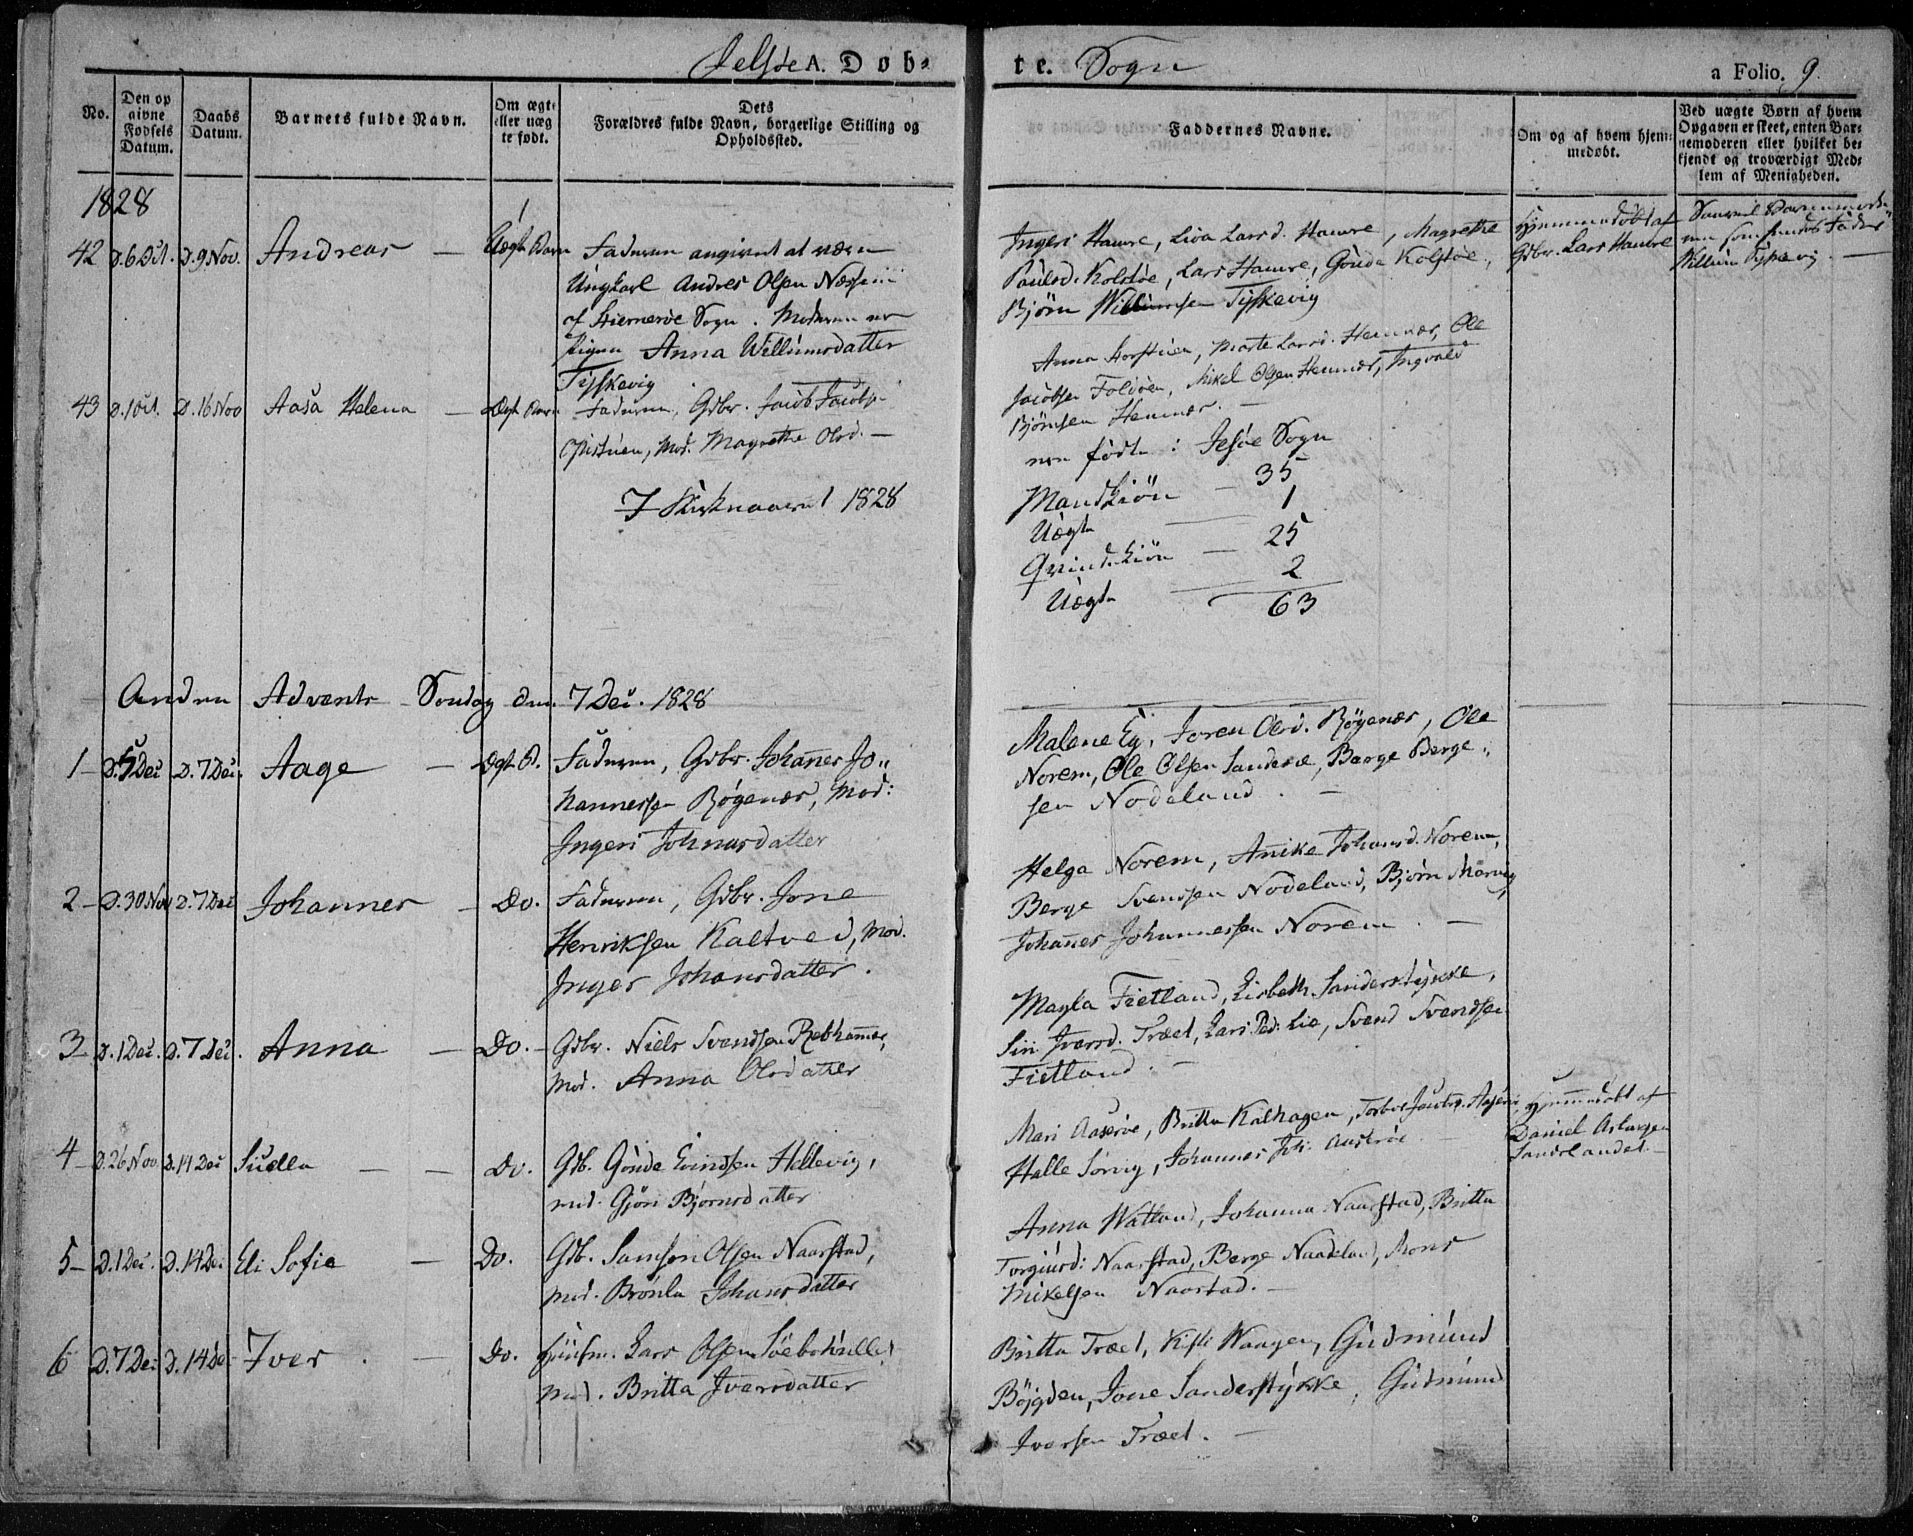 Jelsøe A. Døb-
te. Sogn
a Folio. 9.
No.
Den op
givne
Fødsels
Datum.
Daabs
Datum.
Barnets fulde Navn.
Om ægte
eller uæg
te født.
Dets
Forældres fulde Navn, borgerlige Stilling og
Opholdssted.
Faddernes Navne.
Om og af hvem hjem-
medøbt.
Ved uægte Børn af hvem
Opgaven er skeet, enten Bar-
nemoderen eller hvilket be-
kjendt og troværdigt Med-
lem af Menigheden.
1828
42 D. 6 Oct. D. 9 Nov. Andreas — Uægt. Barn
Faderen angivet at være
Ungkarl Andres Olsen
af Hiernerøe Sogn. Moderen er
Pigen Anna Willumsdatter
Tyskevig
Ingeri Hamre, Liva Larsd. Hamre, Magrethe
Paulsd. Kolstøe, Lars Hamre, Gunde Kolstøe,
Bjørn Willumsen Tyskevig
Hjemmedøbt af
Gdbr. Lars Hamre
Samuel Barnemode
ren som hendes Fader
Willum Tyskevig. —
43 D. 1 Oct. D. 16 Nov Aasa Helena — Ægt. Barn
Faderen, Gdbr. Jacob Jacobs.
Østuen, Mod. Magrethe Olsd. —
Anna, Marte Larsd. Hemnes, Ole
Jacobsen Foldøen, Mikel Olsen Hemnes, Ingvald
Bjørnsen Hemnes. —
I Kirkeaaret 1828
ere fødte i Jelsøe Sogn
Mandkiøn — 35
Uægte 1
Qvindekiøn — 25
Uægte 2
63
Anden Advents Søndag den 7 Dec. 1828
1 — D. 5 Dec D. 7 Dec. Aage — Ægt. B.
Faderen, Gdbr. Johannes Jo-
hannessen Røgenæs, Mod:
Ingeri Johnsdatter
Malene Eg, Joren Olsd. Røgenæs, Ole
Norem, Ole Olsen Sandsøe, Barge Berge-
sen Nodeland. —
2 — D. 30 Nov D. 7 Dec Johannes — Do.
Faderen, Gdbr. Jone
Henriksen Kaltved, Mod.
Inger Johansdatter.
Helga Norem, Anike Johansd. Norem,
Berge Svendsen Nodeland, Bjørn Marvig,
Johannes Johannessen Norem. —
3 — D. 1 Dec. D. 7 Dec. Anna — Do. —
Gdbr. Niels Svendsen Rebhammer,
Mod. Anna Olsdatter
Magla Fietland, Lisbeth Sanderstykke,
Siri Iversd. Træet, Lars Ped: Lie, Svend Svendsen
Fietland. —
4 — D. 26 Nov. D. 14 Dec — — Do.
Gdb. Gunde Evindsen Hillevig,
mod. Gjøri Bjørnsdatter
Mari Aaserøe, Britta Kalhagen,
Halle Sørvig, Johannes Joh:
Hjemmedøbt af
Daniel
Sandslandet. —
5 — D. 1 Dec. D. 14 Dec Eli Sofie — Do.
Gdb. Samson Olsen Naarstad,
Mod. Brønla Johansdatter
Anna Watland, Johanna Naarstad, Britta
Torgiersd: Naarstad, Berge Naadeland, Mons
Mikelsen Naarstad. —
6 D. 7 Dec D. 14 De Iver. — Do.
Huusm. Lars Olsen
mod. Britta Iversdatter
Britta Træet, Kisti Waagen, Gudmund
Bøjgden, Jone Sanderstykke, Gudmund
Iversen Træet. —